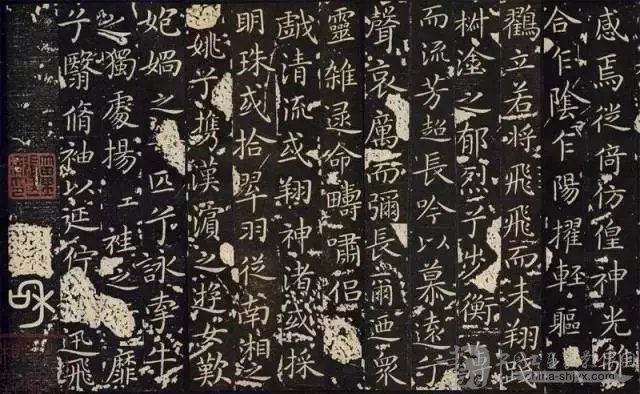 感焉徙倚仿徨神光離
合乍陰乍陽擢輕軀
立若將飛飛而未翔踐
塗之郁烈兮步衡
而流芳超長吟以慕遠兮
聲哀厲而彌長爾迺衆
靈雜遝命疇嘯侶
戲清流或翔神渚或採
明珠或拾翠羽從南湘之
姚兮携漢濱之遊女歎
媧之匹兮詠牽牛
之獨處揚袿之靡
兮翳脩袖以延佇迅飛